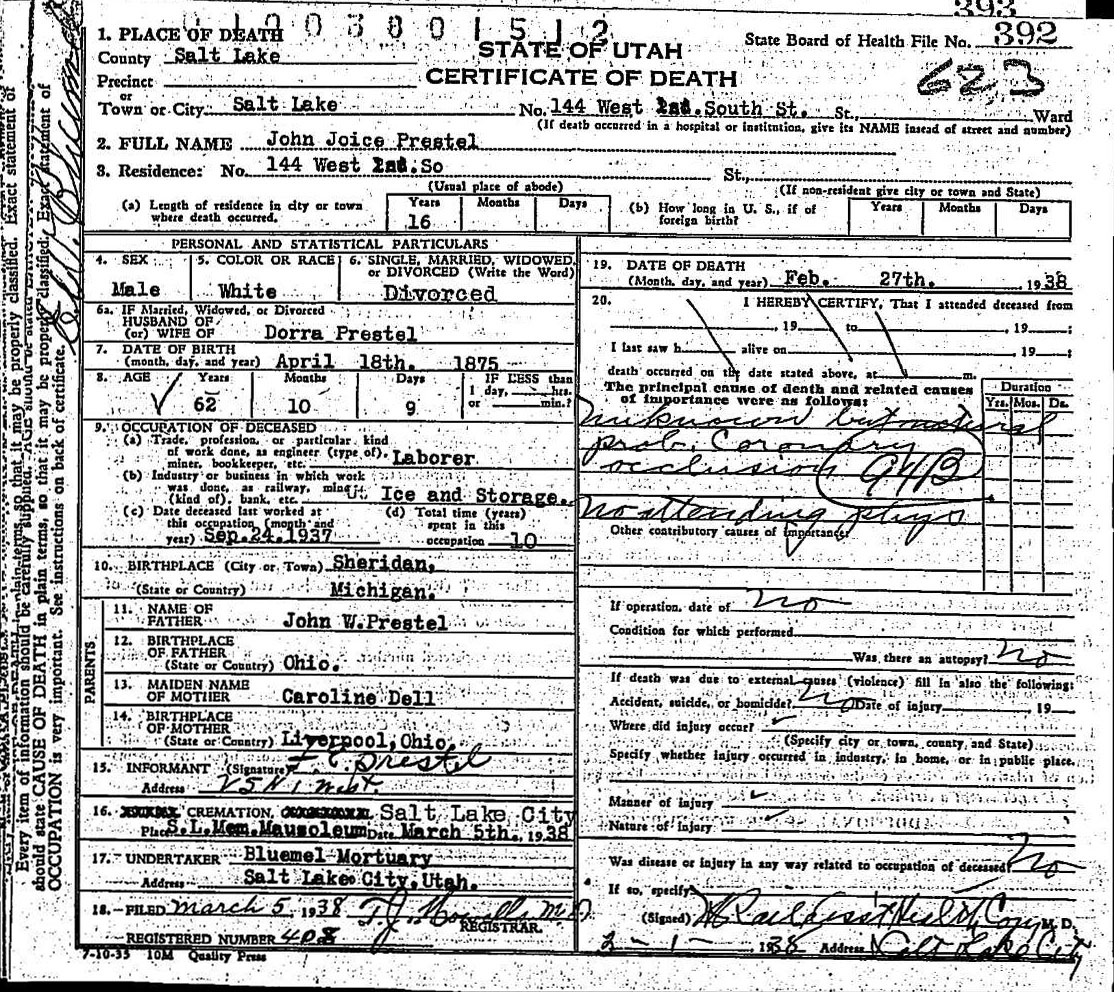 0 1 0 0 3 8 0 1 5 1 2
393
State Board of Health File No. 392
623
STATE OF UTAH
CERTIFICATE OF DEATH
1. PLACE OF DEATH
County Salt Lake
Precinct
or
Town or City Salt Lake No. 144 West South St. St., Ward
(If death occurred in a hospital or institution, give its NAME instead of street and number)
2. FULL NAME John Joice Prestel
3. Residence: No. 144 West So St.,
(Usual place of abode) (If non-resident give city or town and State)
(a) Length of residence in city or town where death occurred. Years 16 Months Days
(b) How long in U. S., if of foreign birth? Years Months Days
PERSONAL AND STATISTICAL PARTICULARS
4. SEX Male
5. COLOR OR RACE White
6. SINGLE, MARRIED, WIDOWED, or DIVORCED (Write the Word) Divorced
6a. IF Married, Widowed, or Divorced
HUSBAND OF
(or) WIFE OF Dorra Prestel
7. DATE OF BIRTH
(month, day, and year) April 18th. 1875
8. AGE Years 62 Months 10 Days 9
IF LESS than 1 day, hrs. or min.?
9. OCCUPATION OF DECEASED
(a) Trade, profession, or particular kind
of work done, as engineer (type of),
miner, bookkeeper, etc. Laborer
(b) Industry or business in which work
was done, as railway, mine
(kind of), bank, etc. Ice and Storage.
(c) Date deceased last worked at
this occupation (month and
year) Sep.24.1937
(d) Total time (years)
spent in this
occupation 10
10. BIRTHPLACE (City or Town) Sheridan,
(State or Country) Michigan.
PARENTS
11. NAME OF FATHER John W.Prestel
12. BIRTHPLACE OF FATHER
(State or Country) Ohio.
13. MAIDEN NAME OF MOTHER Caroline Dell
14. BIRTHPLACE OF MOTHER
(State or Country) Liverpool,Ohio
15. INFORMANT (Signature) Prestel
Address
16. CREMATION, Salt Lake City
Place S.L.Mem.Mausoleum Date March 5th. 1938
17. UNDERTAKER Bluemel Mortuary
Address Salt Lake City,Utah.
18. FILED March 5 1938 T.J. Howells M.D.
REGISTRAR.
REGISTERED NUMBER 408
7-10-35 10M Quality Press
19. DATE OF DEATH
(Month, day, and year) Feb. 27th. , 1938
20. I HEREBY CERTIFY, That I attended deceased from
, 19 to , 19 ;
I last saw h alive on , 19 ;
death occurred on the date stated above, at m.
The principal cause of death and related causes
of importance were as follows:
Duration
Yrs. Mos. Ds.
unknown but natural
prob. Coronary
occlusion
No attending phys
Other contributory causes of importance:
If operation, date of no
Condition for which performed
Was there an autopsy? no
If death was due to external causes (violence) fill in also the following:
Accident, suicide, or homicide? No Date of injury , 19
Where did injury occur?
(Specify city or town, county, and State)
Specify whether injury occurred in industry, in home, or in public place.
Manner of injury
Nature of injury
Was disease or injury in any way related to occupation of deceased? No
If so, specify
(Signed) M. D.
3-1- 1938 Address Salt Lake City
Every item of information should be carefully supplied.
should state CAUSE OF DEATH in plain terms, so that it may be properly classified. Exact statement of
OCCUPATION is very important. See instructions on back of certificate.